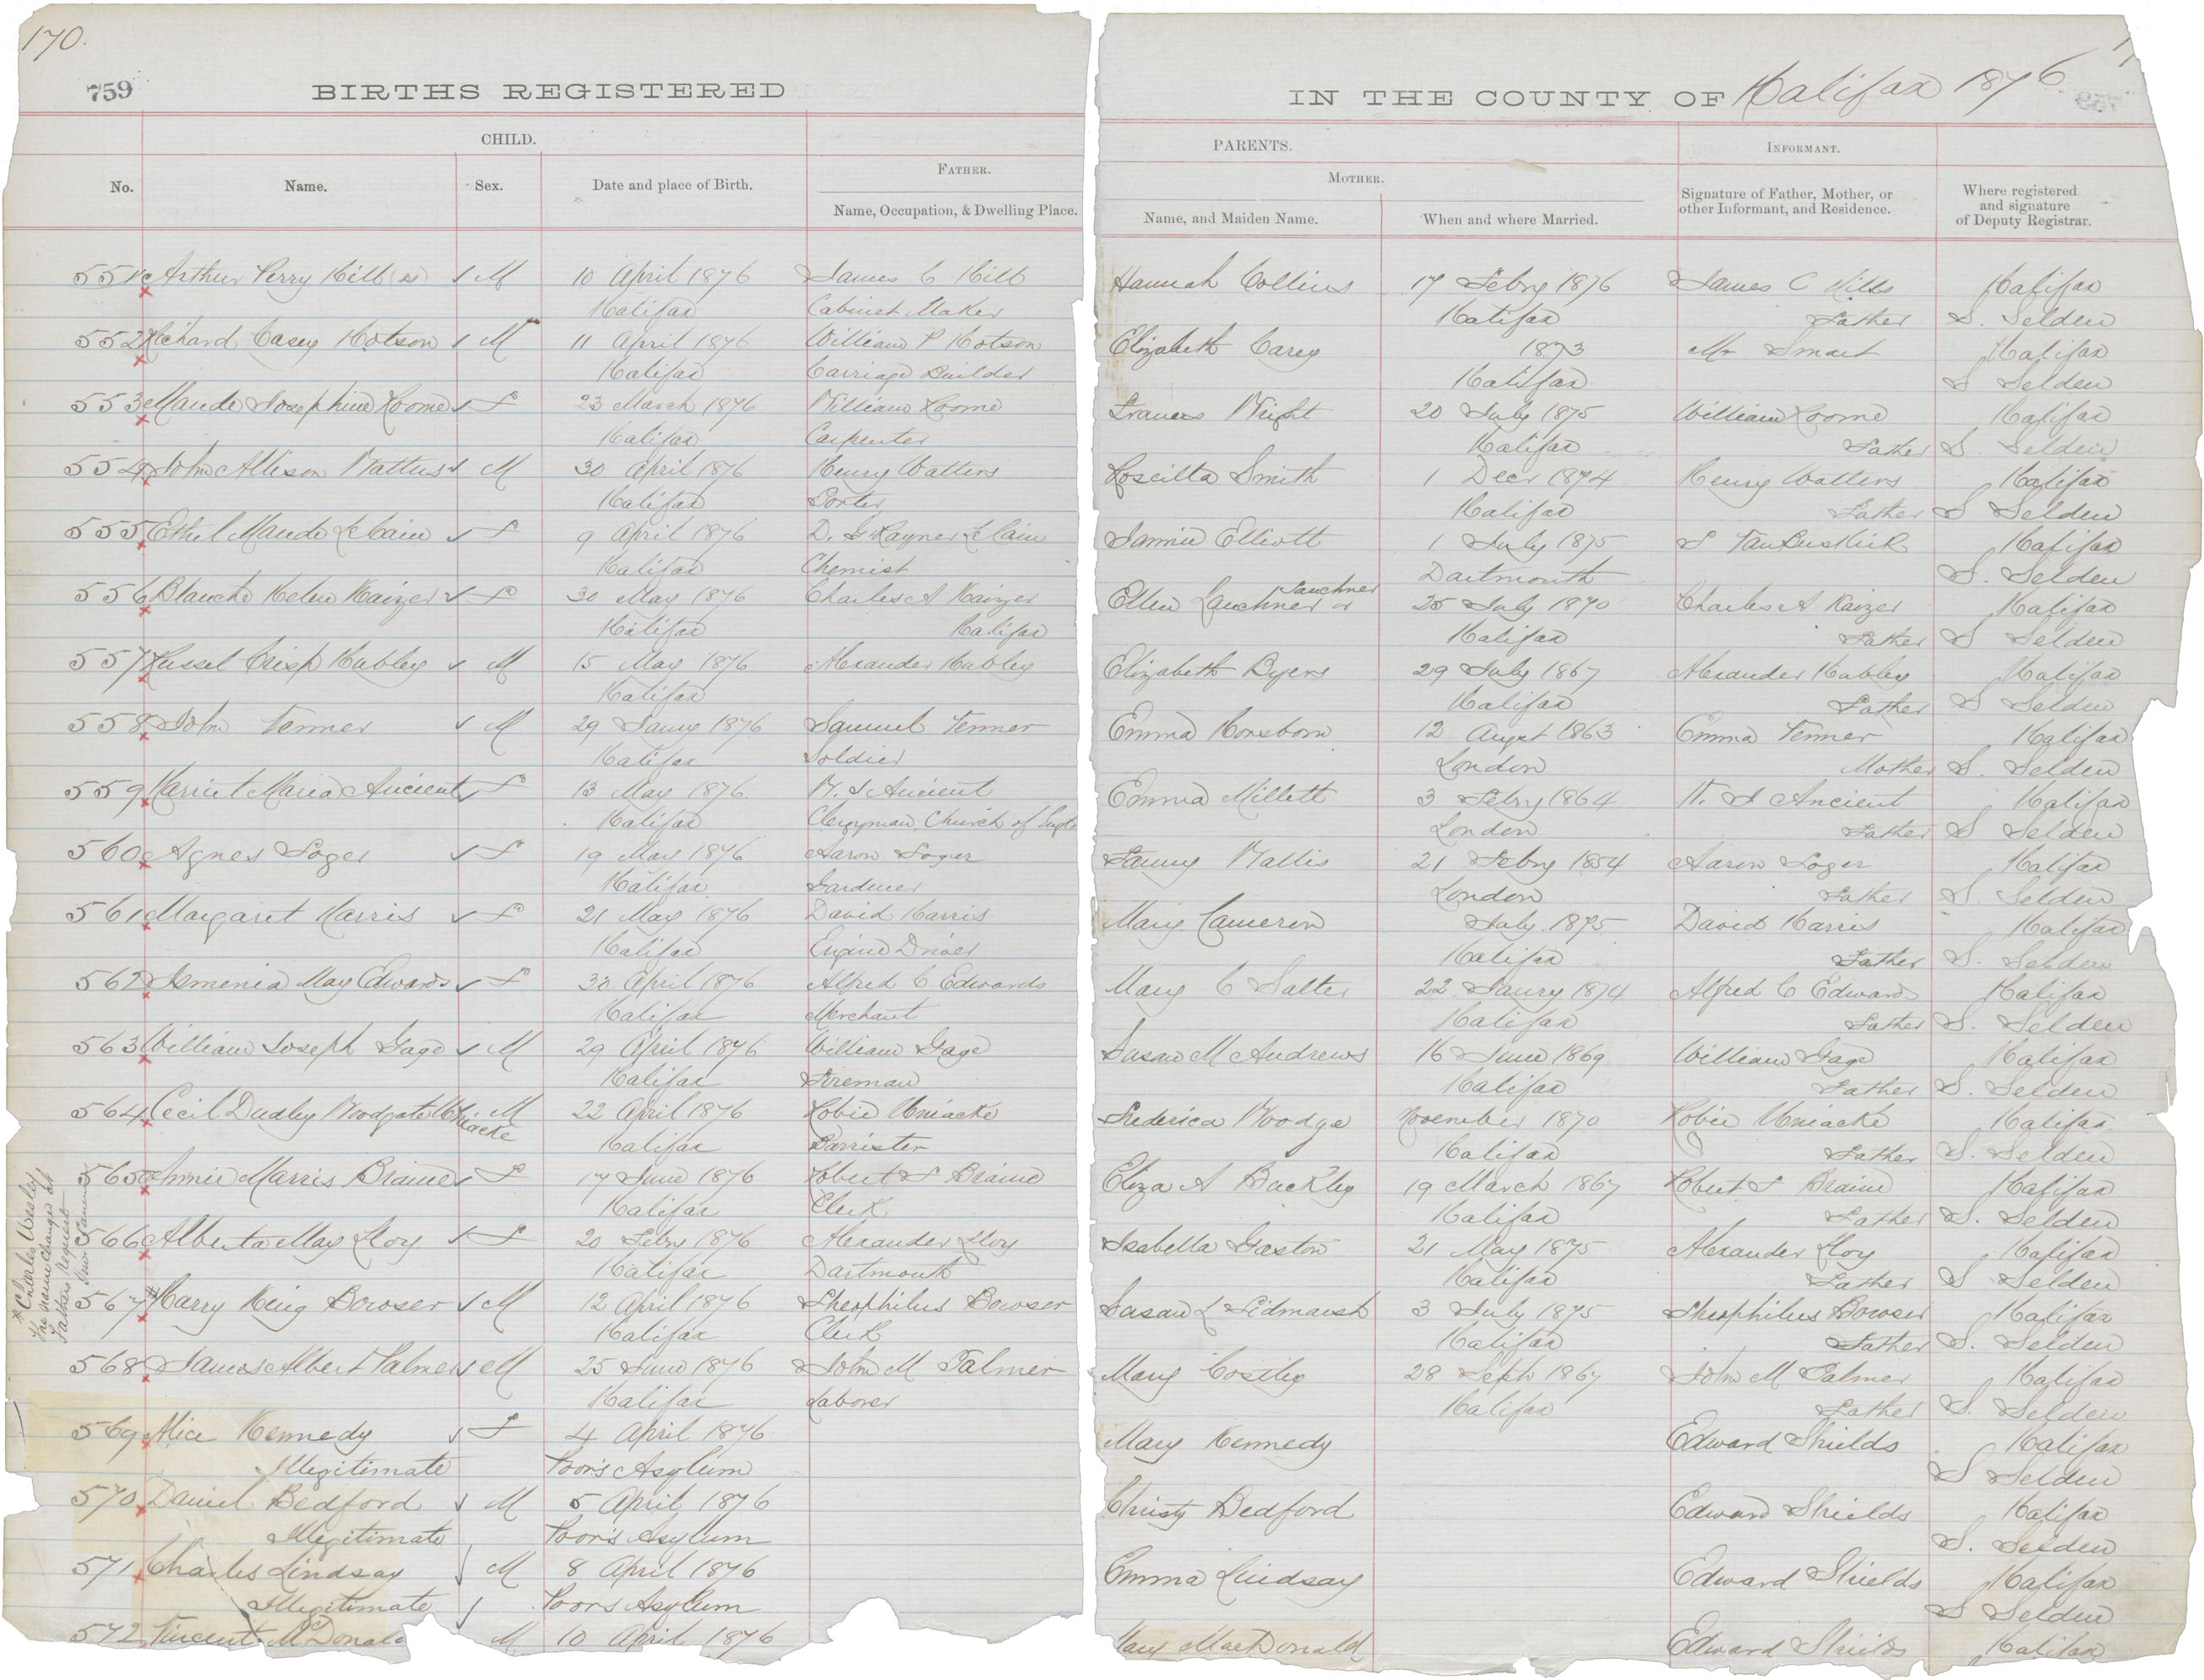 170.
759
BIRTHS REGISTERED
IN THE COUNTY OF Halifax 1876
CHILD.
PARENTS.
INFORMANT.
FATHER.
MOTHER.
No.
Name.
Sex.
Date and place of Birth.
Name, Occupation, & Dwelling Place.
Name, and Maiden Name.
When and where Married.
Signature of Father, Mother, or
other Informant, and Residence.
Where registered
and signature
of Deputy Registrar.
551 Arthur Perry Hill (s) M 10 April 1876 James C Hill Hannah Collins 17 Febry 1876 James C Hills Halifax
Halifax Cabinet Maker Halifax Father S. Selden
552 Richard Casey Hotson M 11 April 1876 William P Hotson Elizabeth Carey 1873 Mr Smart Halifax
Halifax Carriage Builder Halifax S Selden
553 Maude Josephine Roome F 23 March 1876 William Roome Frances Wright 20 July 1875 William Roome Halifax
Halifax Carpenter Halifax Father S. Selden
554 John Allison Watters M 30 April 1876 Henry Watters Smith 1 Decr 1874 Henry Watters Halifax
Halifax Porter Halifax Father S Selden
555 Ethel Maude LeCain F 9 April 1876 D. G Rayner LeCain Jannie Elliott 1 July 1875 Halifax
Halifax Chemist Dartmouth S. Selden
556 Blanche Helen Kaizer F 30 May 1876 Charles A Kaizer Ellen Lauchner or Jauchner 25 July 1870 Charles A Kaizer Halifax
Halifax Halifax Halifax Father S Selden
557 Russel Crisp Hubley M 15 May 1876 Alexander Hubley Elizabeth Byers 29 July 1867 Alexander Hubley Halifax
Halifax Halifax Father S Selden
558 John Fenner M 29 1876 Samuel Fenner Emma Honsborn 12 Augst 1863 Emma Fenner Halifax
Halifax Soldier London Mother S. Selden
559 Harriet Maria Ancient F 13 May 1876 W. J Ancient Emma Millett 3 Febry 1864 W. J Ancient Halifax
Halifax Clergyman Church of London Father S Selden
560 Agnes Soger F 19 May 1876 Aaron Soger Fanny Wallis 21 Febry 1854 Aaron Soger Halifax
Halifax Gardiner London Father S. Selden
561 Margaret Harris F 21 May 1876 David Harris Mary Cameron July 1875 David Harris Halifax
Halifax Engine Driver Halifax Father S. Selden
562 Jemenia May Edwards F 30 April 1876 Alfred C Edwards Mary C Salter 22 Janry 1874 Alfred C Edwards Halifax
Halifax Merchant Halifax Father S. Selden
563 William Joseph Gage M 29 April 1876 William Gage Susan McAndrews 16 June 1869 William Gage Halifax
Halifax Fireman Halifax Father S. Selden
564 Cecil Dudley Woodgate Uniacke M 22 April 1876 Robie Uniacke Frederica Woodge November 1870 Robie Uniacke Halifax
Halifax Barrister Halifax Father S. Selden
565 Annie Marris Braine F 17 June 1876 Robert F Braine Eliza A Buckley 19 March 1867 Robert F Braine Halifax
Halifax Clerk Halifax Father S. Selden
566 Alberta May Lloy F 20 Febry 1876 Alexander Lloy Isabella Gaston 21 May 1875 Alexander Lloy Halifax
Halifax Dartmouth Halifax Father S Selden
* Charles Wesley
The name changed at
Fathers request
567 * Harry King Bowser M 12 April 1876 Theophilus Bowser Susan L Tidmarsh 3 July 1875 Theophilus Bowser Halifax
Halifax Clerk Halifax Father S. Selden
568 James Albert Palmer M 25 June 1876 John M Palmer Mary Costley 28 Septr 1867 John M Palmer Halifax
Halifax Laborer Halifax Father S. Selden
569 Alice Kennedy F 4 April 1876 Mary Kennedy Edward Shields Halifax
Illegitimate Poor's Asylum S Selden
570 Daniel Bedford M 5 April 1876 Christy Bedford Edward Shields Halifax
Illegitimate Poor's Asylum S. Selden
571 Charles Lindsay M 8 April 1876 Emma Lindsay Edward Shields Halifax
Illegitimate Poors Asylum S Selden
572 Vincent McDonald M 10 April 1876 Mary MacDonald Edward Shields Halifax